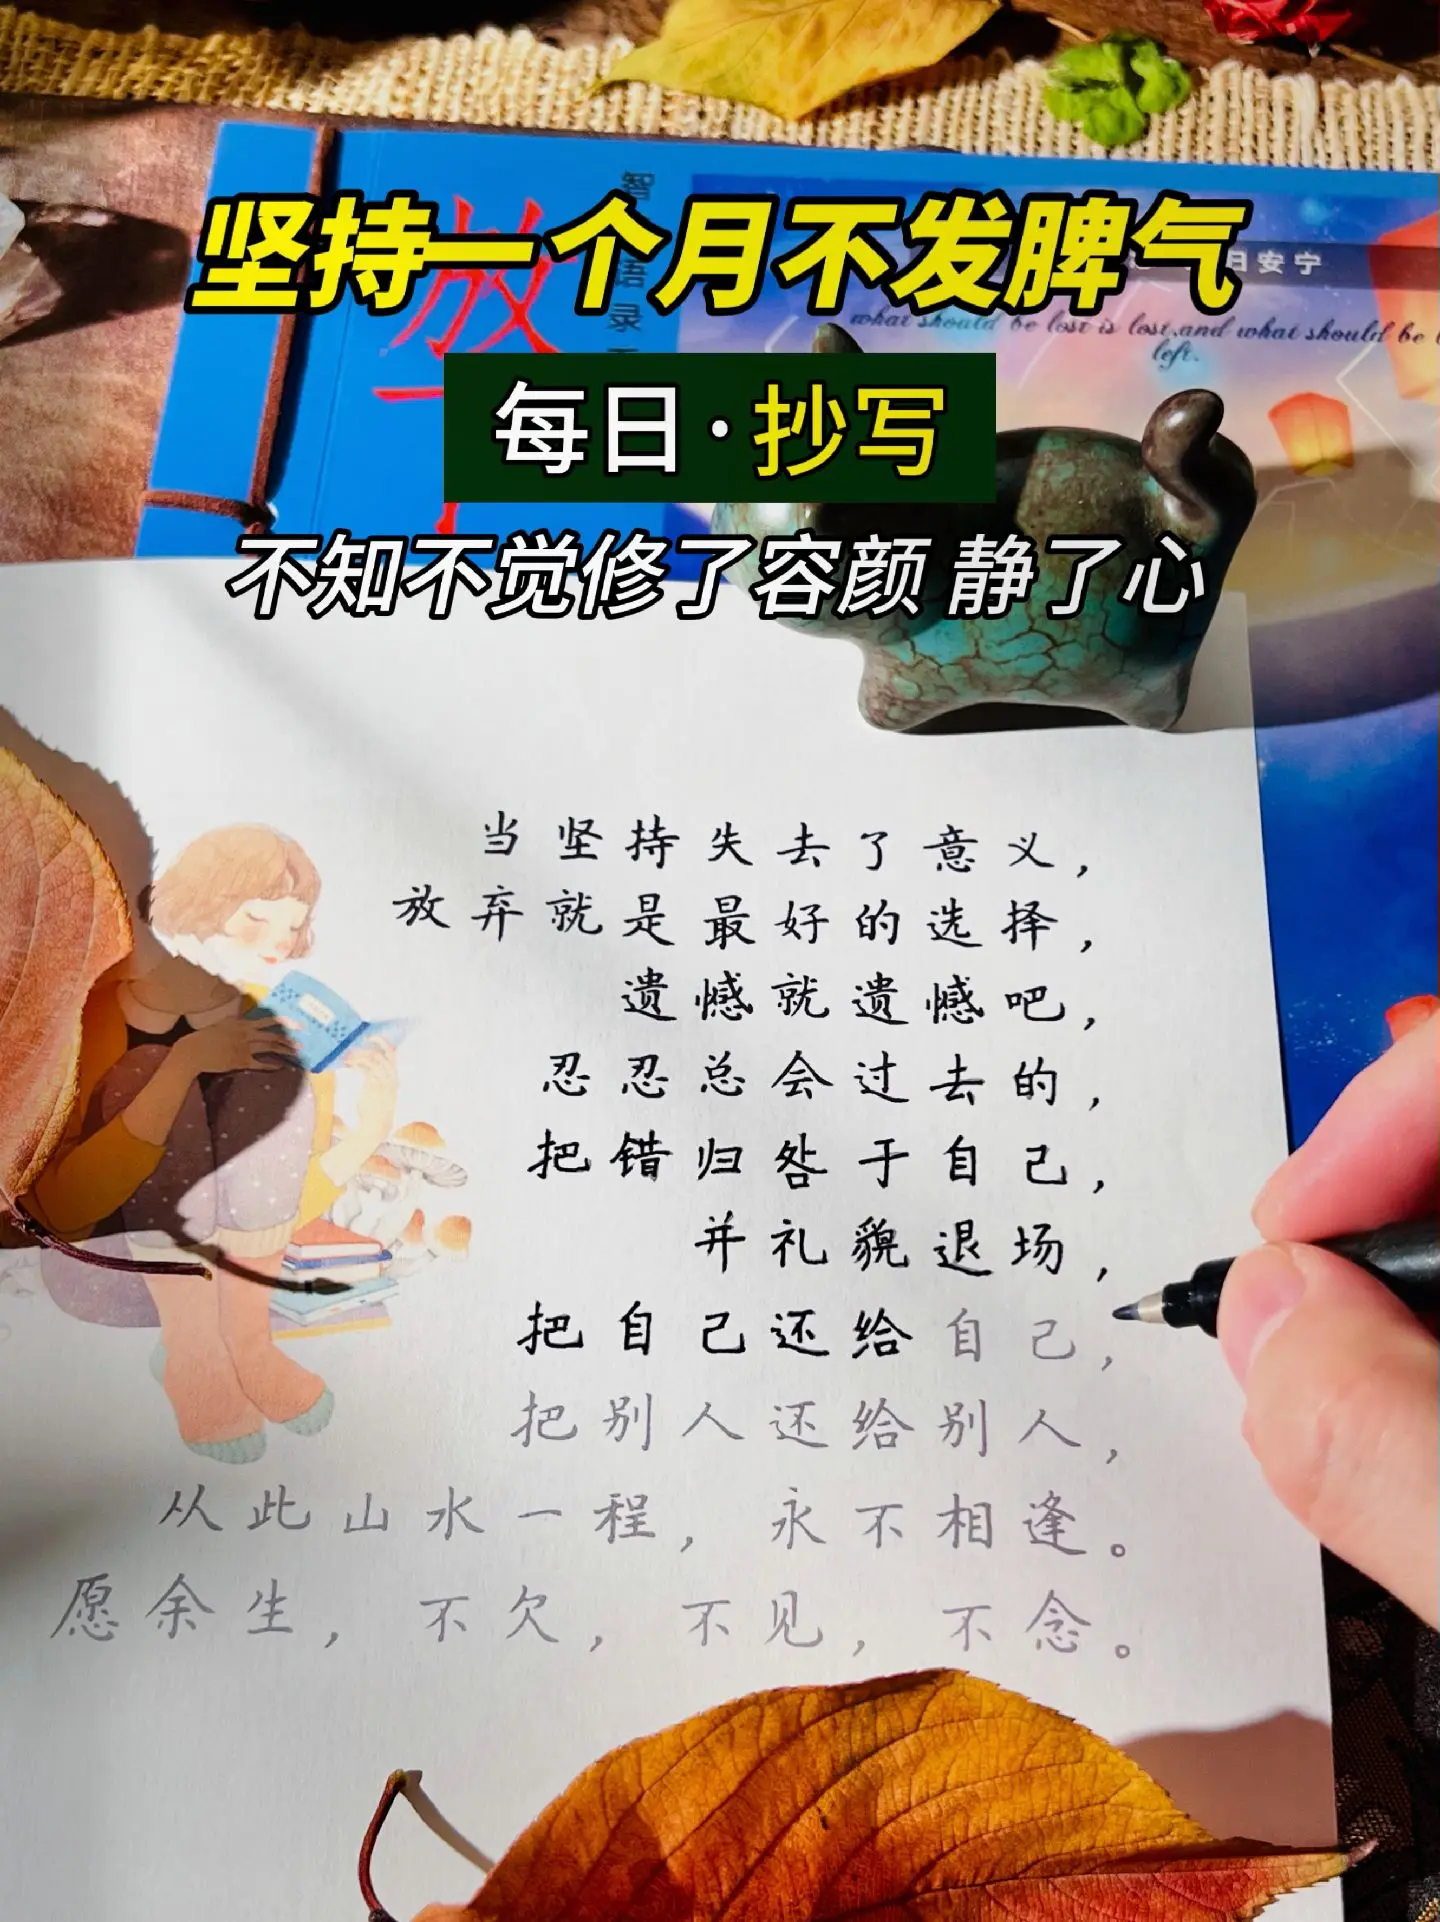 坚持一个月不发脾气
每日·抄写
不知不觉修了容颜 静了心
放下
智
语录
日安宁
what should be lost is lost,and what should be
left.
当坚持失去了意义，
放弃就是最好的选择，
遗憾就遗憾吧，
忍忍总会过去的，
把错归咎于自己，
并礼貌退场，
把自己还给自己，
把别人还给别人，
从此山水一程，永不相逢。
愿余生，不欠，不见，不念。